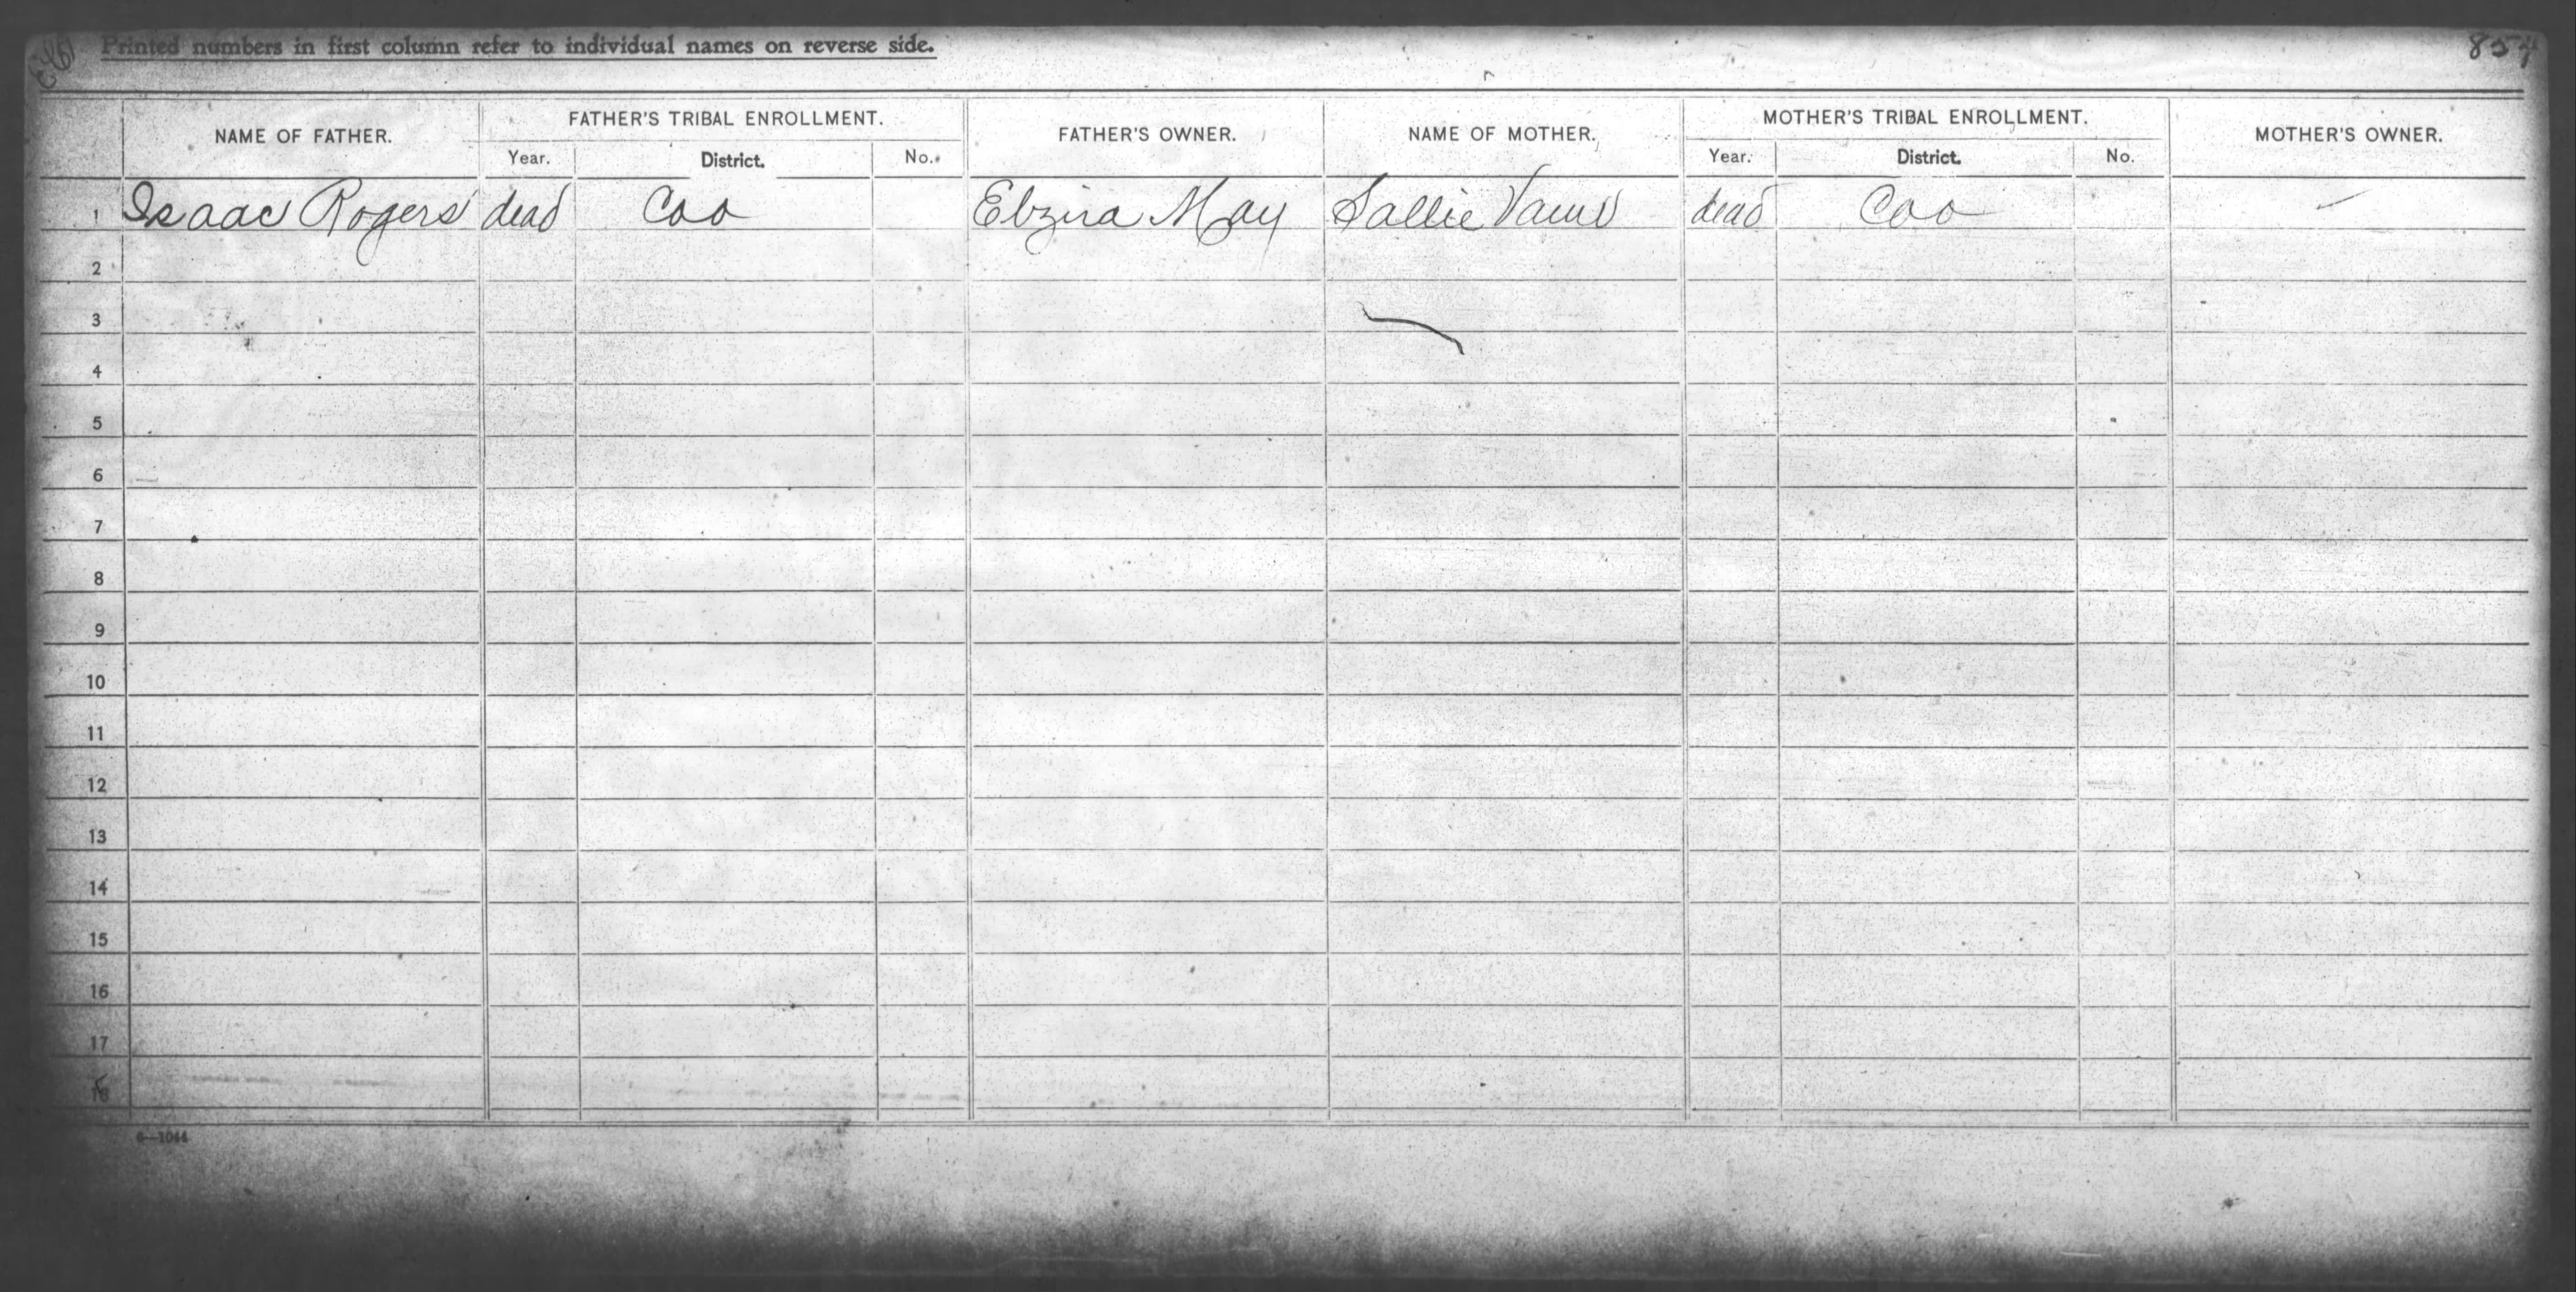 Printed numbers in first column refer to individual names on reverse side.
857
NAME OF FATHER. FATHER'S TRIBAL ENROLLMENT. FATHER'S OWNER. NAME OF MOTHER. MOTHER'S TRIBAL ENROLLMENT. MOTHER'S OWNER.
Year. District. No. Year. District. No.
1 Isaac Rogers dead Coo Elzira May Sallie dead Coo —
2
3
4
5
6
7
8
9
10
11
12
13
14
15
16
17
18
6—1044